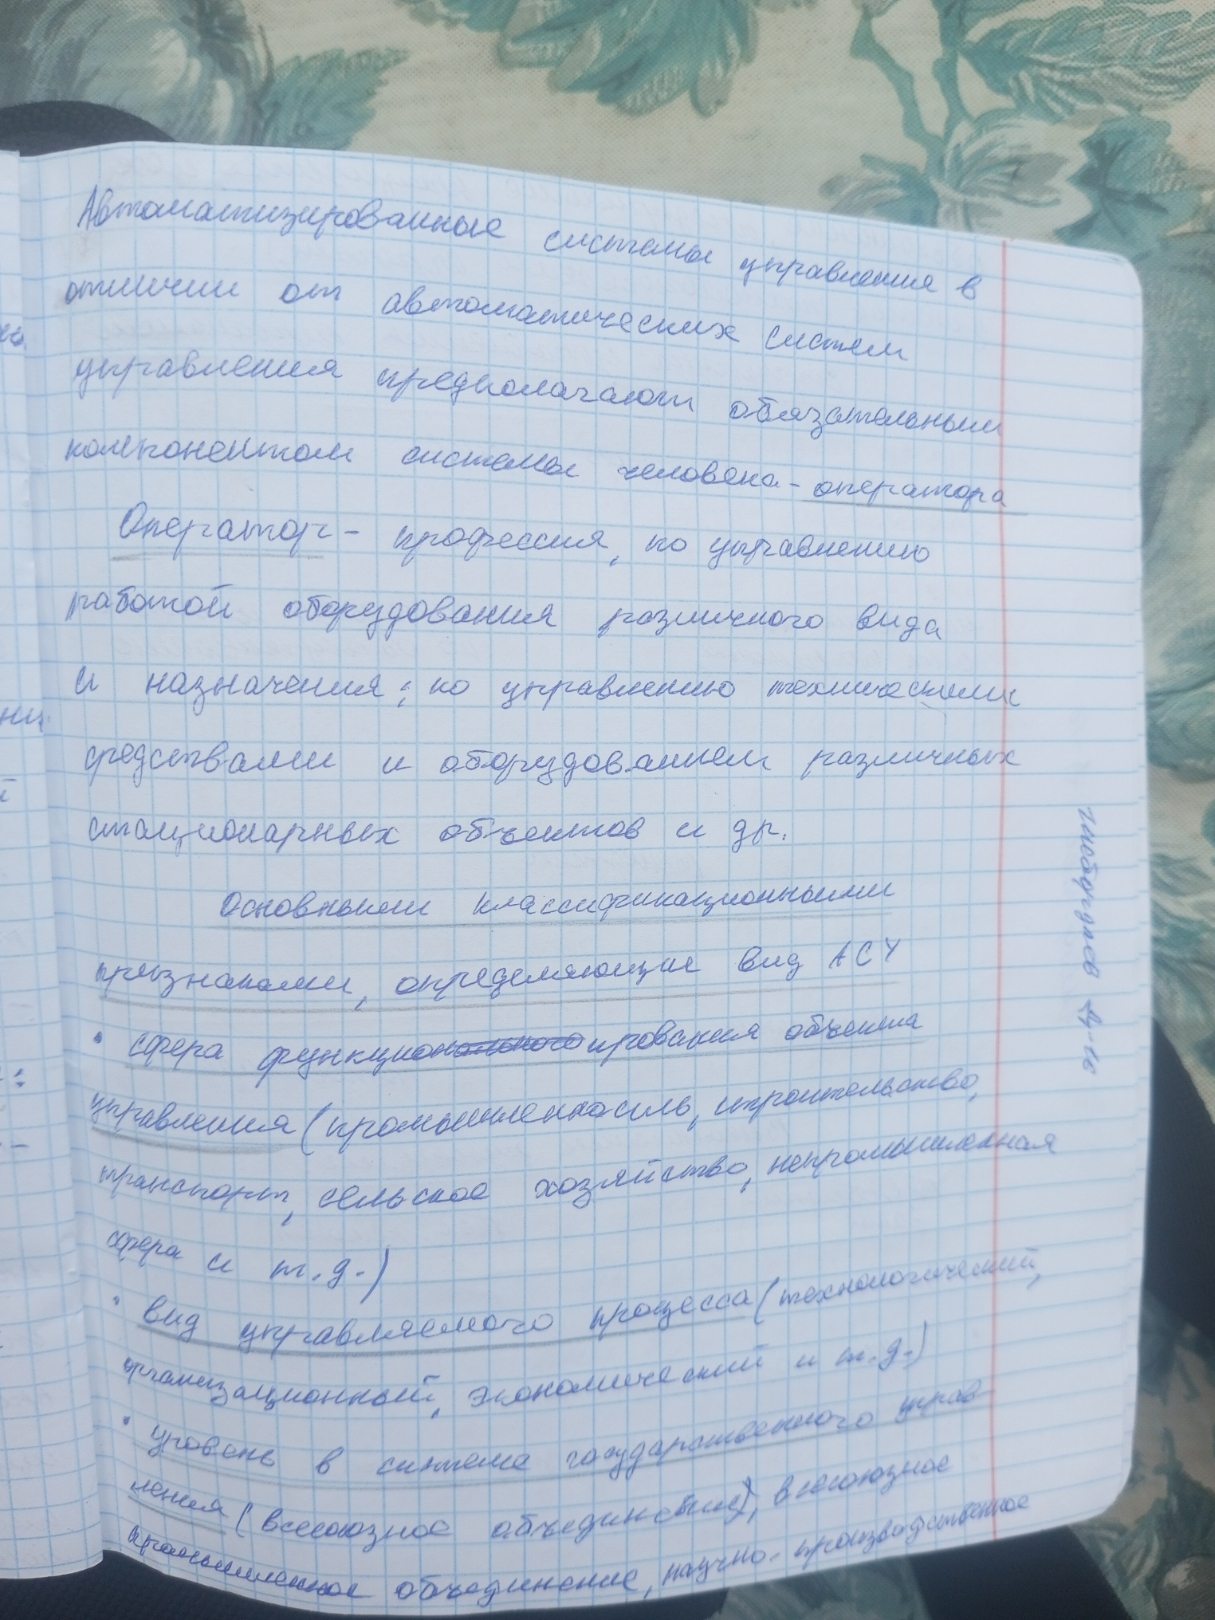 Автоматизированные системы управления в
отличии от автоматических систем
управления предполагают обязательным
компонентом системы человека-оператора
Оператор - профессия, по управлению
работой оборудования различного вида
и назначения; по управлению техническими
средствами и оборудованием различных
стационарных объектов и др.
Основными классификационными
признаками, определяющие вид АСУ
• сфера функционирования объекта
управления (промышленность, строительство,
транспорт, сельское хозяйство, непромышленная
сфера и т.д.)
• вид управляемого процесса (технологический,
организационный, экономический и т.д.)
• уровень в системе государственного управ
ления (всесоюзное объединение), всесоюзное
промышленное объединение, научно-производственное